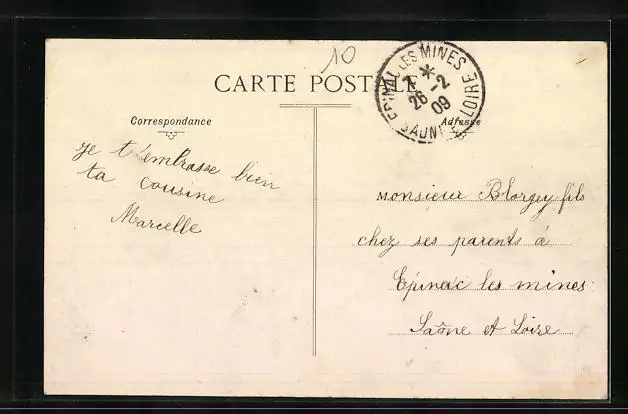 10
CARTE POSTALE
EPINAC LES MINES
2 *
26 -2
09
SAÔNE & LOIRE
Correspondance
Adresse
je t'embrasse bien
ta cousine
Marcelle
Monsieur Blorgey fils
chez ses parents à
Epinac les mines
Saône et Loire